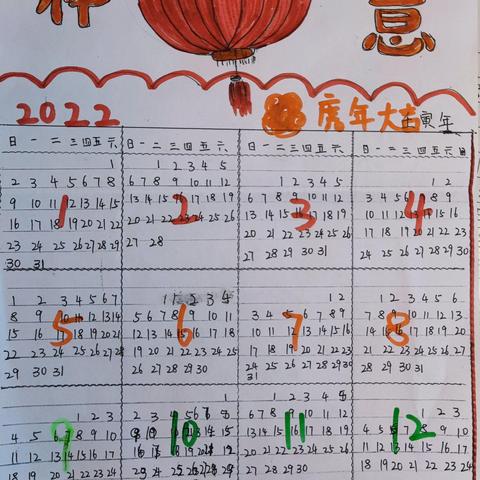 神 意
2022 虎年大吉 壬寅年
日 一 二 三 四 五 六
1
2 3 4 5 6 7 8
9 10 11 12 13 14 15
16 17 18 19 20 21 22
23 24 25 26 27 28 29
30 31
1
日 一 二 三 四 五 六
1 2 3 4 5
6 7 8 9 10 11 12
13 14 15 16 17 18 19
20 21 22 23 24 25 26
27 28
2
日 一 二 三 四 五 六
1 2 3 4 5
6 7 8 9 10 11 12
13 14 15 16 17 18 19
20 21 22 23 24 25 26
27 28 29 30 31
3
日 一 二 三 四 五 六
1 2
3 4 5 6 7 8 9
10 11 12 13 14 15 16
17 18 19 20 21 22 23
24 25 26 27 28 29 30
4
1 2 3 4 5 6 7
8 9 10 11 12 13 14
15 16 17 18 19 20 21
22 23 24 25 26 27 28
29 30 31
5
1 2 3 4
5 6 7 8 9 10 11
12 13 14 15 16 17 18
19 20 21 22 23 24 25
26 27 28 29 30
6
1 2
3 4 5 6 7 8 9
10 11 12 13 14 15 16
17 18 19 20 21 22 23
24 25 26 27 28 29 30
31
7
1 2 3 4 5 6
7 8 9 10 11 12 13
14 15 16 17 18 19 20
21 22 23 24 25 26 27
28 29 30 31
8
1 2 3
4 5 6 7 8 9 10
11 12 13 14 15 16 17
18 19 20 21 22 23 24
9
2 3 4 5 6 7 8
10
1 2 3 4 5
6 7 8 9 10 11 12
13 14 15 16 17 18 19
20 21 22 23 24 25 26
27 28 29 30
11
1 2 3
4 5 6 7 8 9 10
11 12 13 14 15 16 17
18 19 20 21 22 23 24
12